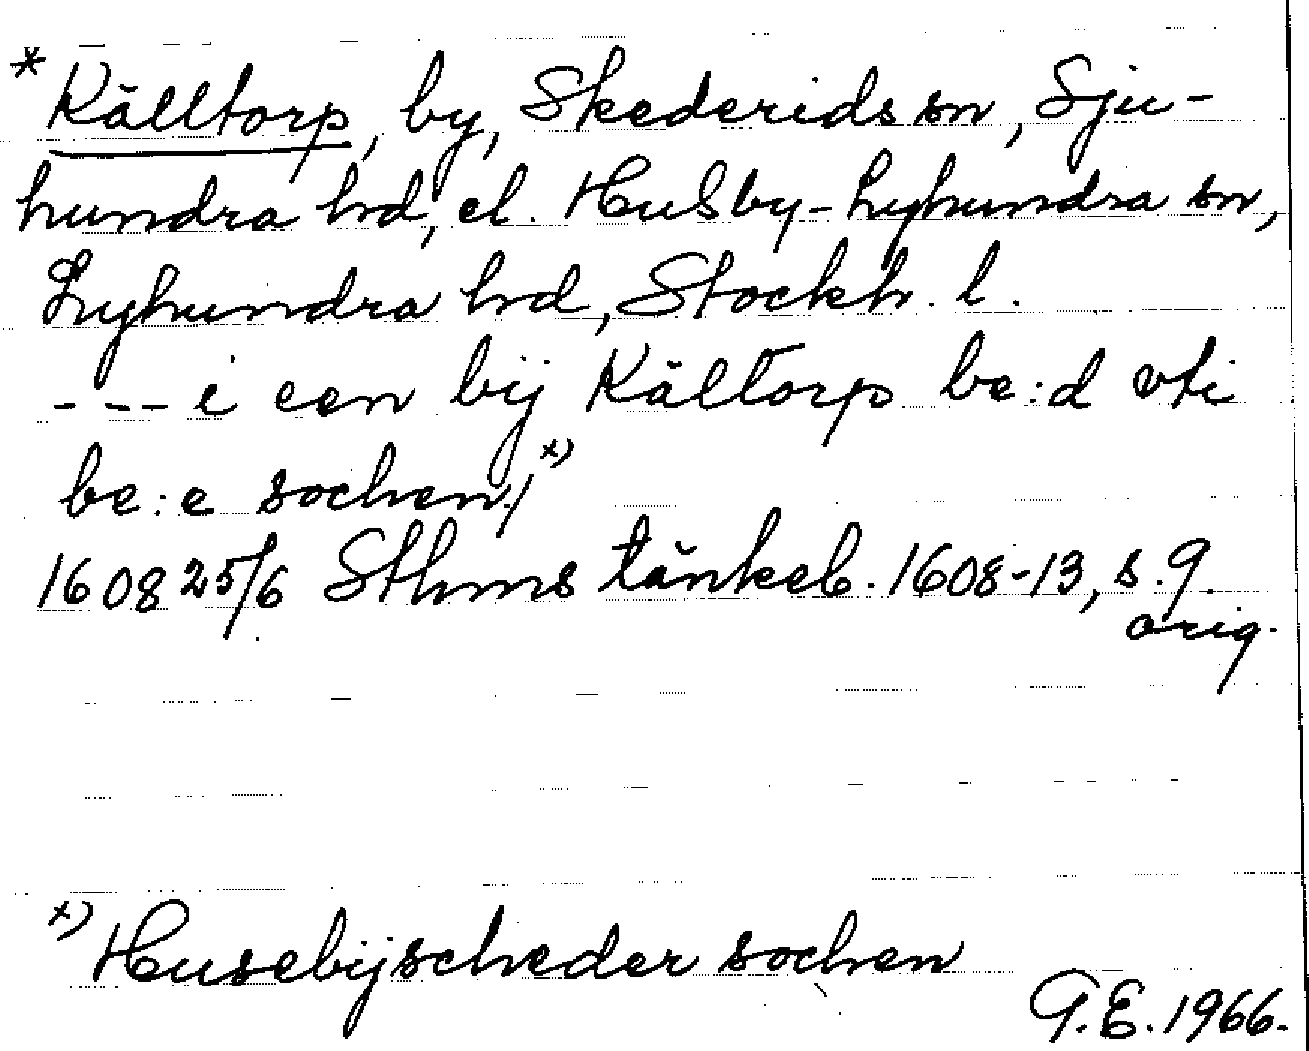 * Källtorp, by, Skederids sn, Sju-
hundra hrd, el. Husby-Lyhundra sn,
Lyhundra hrd, Stockh. l.
--- i een bij Kältorp be:d vti
be:e sochen/ x)
1608 25/6 Sthms tänkeb. 1608-13, s. 9
orig.
x) Husebijscheder sochen
G.E. 1966.